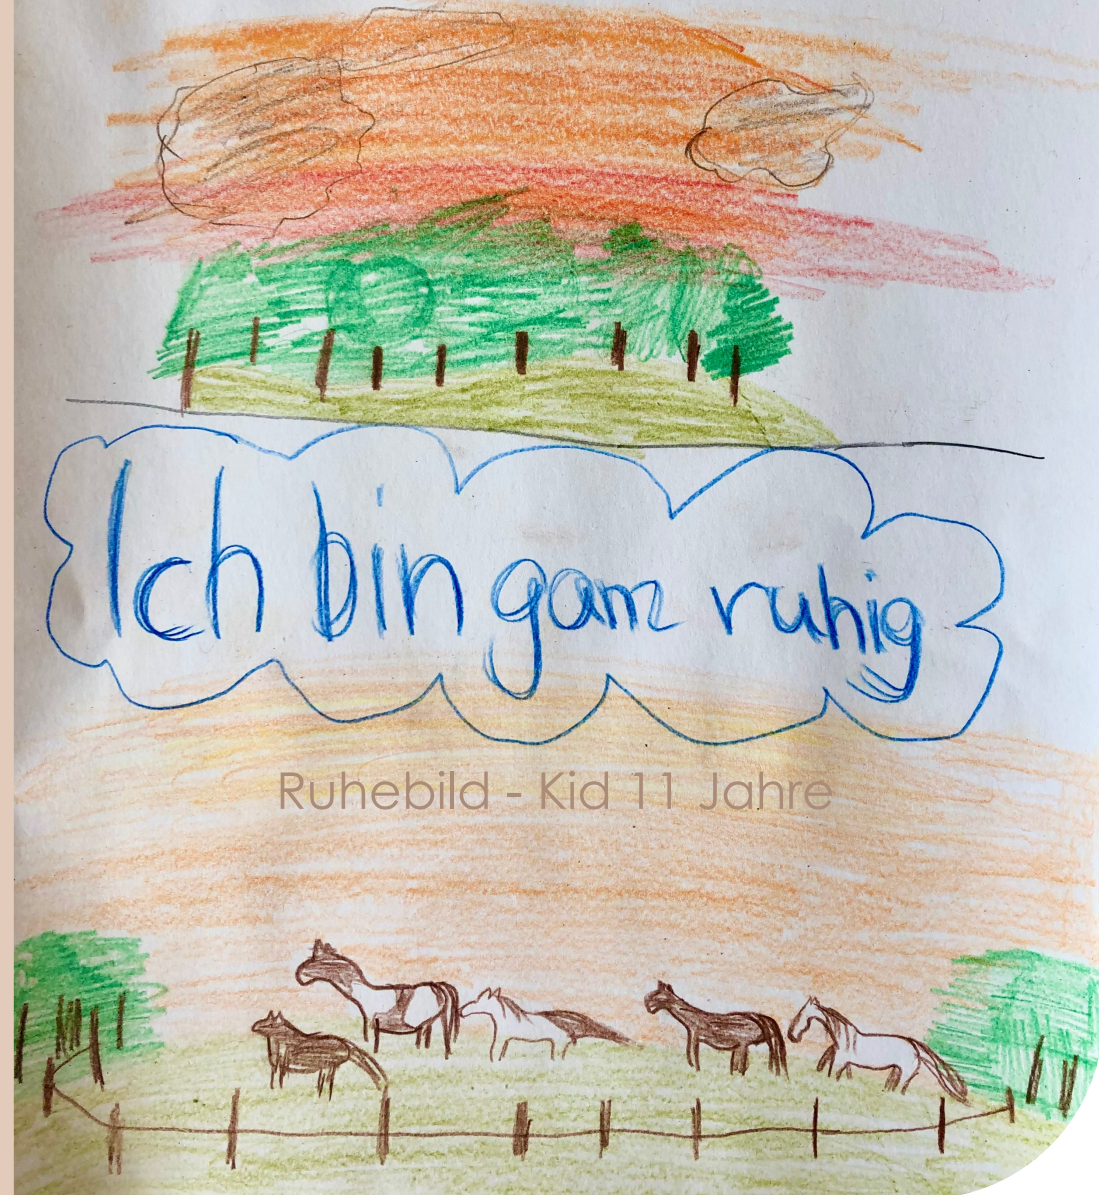 Ich bin ganz ruhig
Ruhebild - Kid 11 Jahre